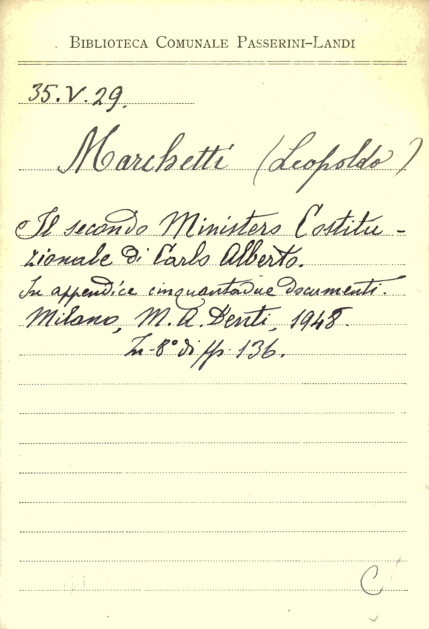 BIBLIOTECA COMUNALE PASSERINI-LANDI
35.V.29.
Marchetti (Leopoldo)
Il secondo Ministero Costitu-
zionale di Carlo Alberto.
In appendice cinquantadue documenti.
Milano, M. A. Denti, 1948.
In-8° di pp. 136.
C